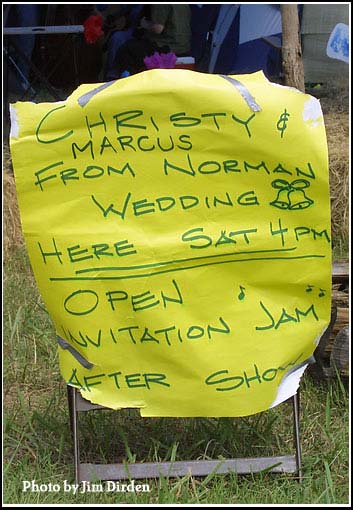 CHRISTY &
MARCUS
FROM NORMAN
WEDDING
HERE SAT 4 PM
OPEN
INVITATION "JAM"
AFTER SHOW
Photo by Jim Dirden